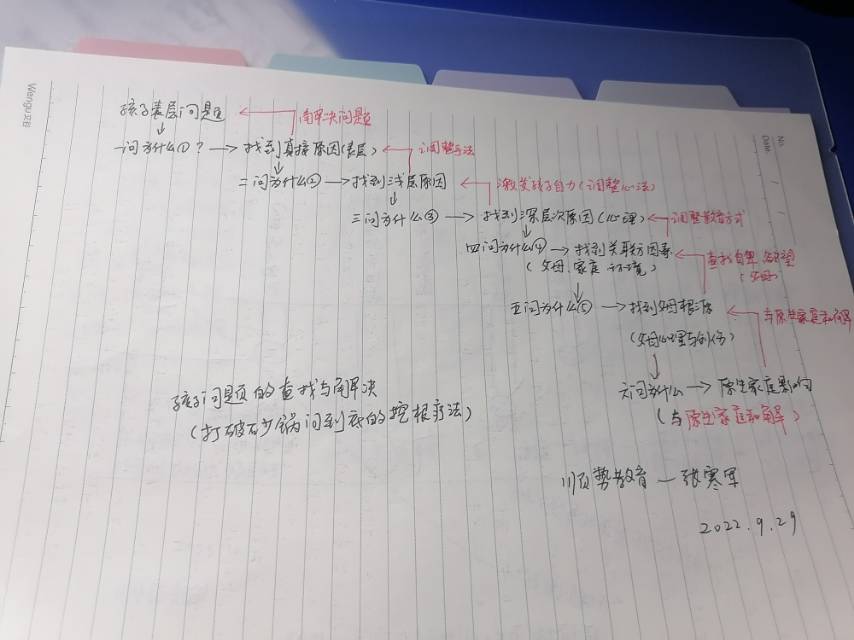 Wengu 文谷
No.
Date
孩子表层问题 解决问题
一问为什么①? → 找到直接原因(表层) 调整手法
二问为什么② → 找到浅层原因 激发孩子自力(调整心法)
三问为什么③ → 找到深层次原因(心理) 调整教育方式
四问为什么④ → 找到关联方因素 查找自卑、欲望
(父母、家庭、环境) (父母)
五问为什么⑤ → 找到父母根源 与原生家庭和解
(父母心理与创伤)
六问为什么 → 原生家庭影响
(与原生家庭和解)
孩子问题的查找与解决
(打破砂锅问到底的挖根疗法)
顺势教育—张寒军
2022.9.29